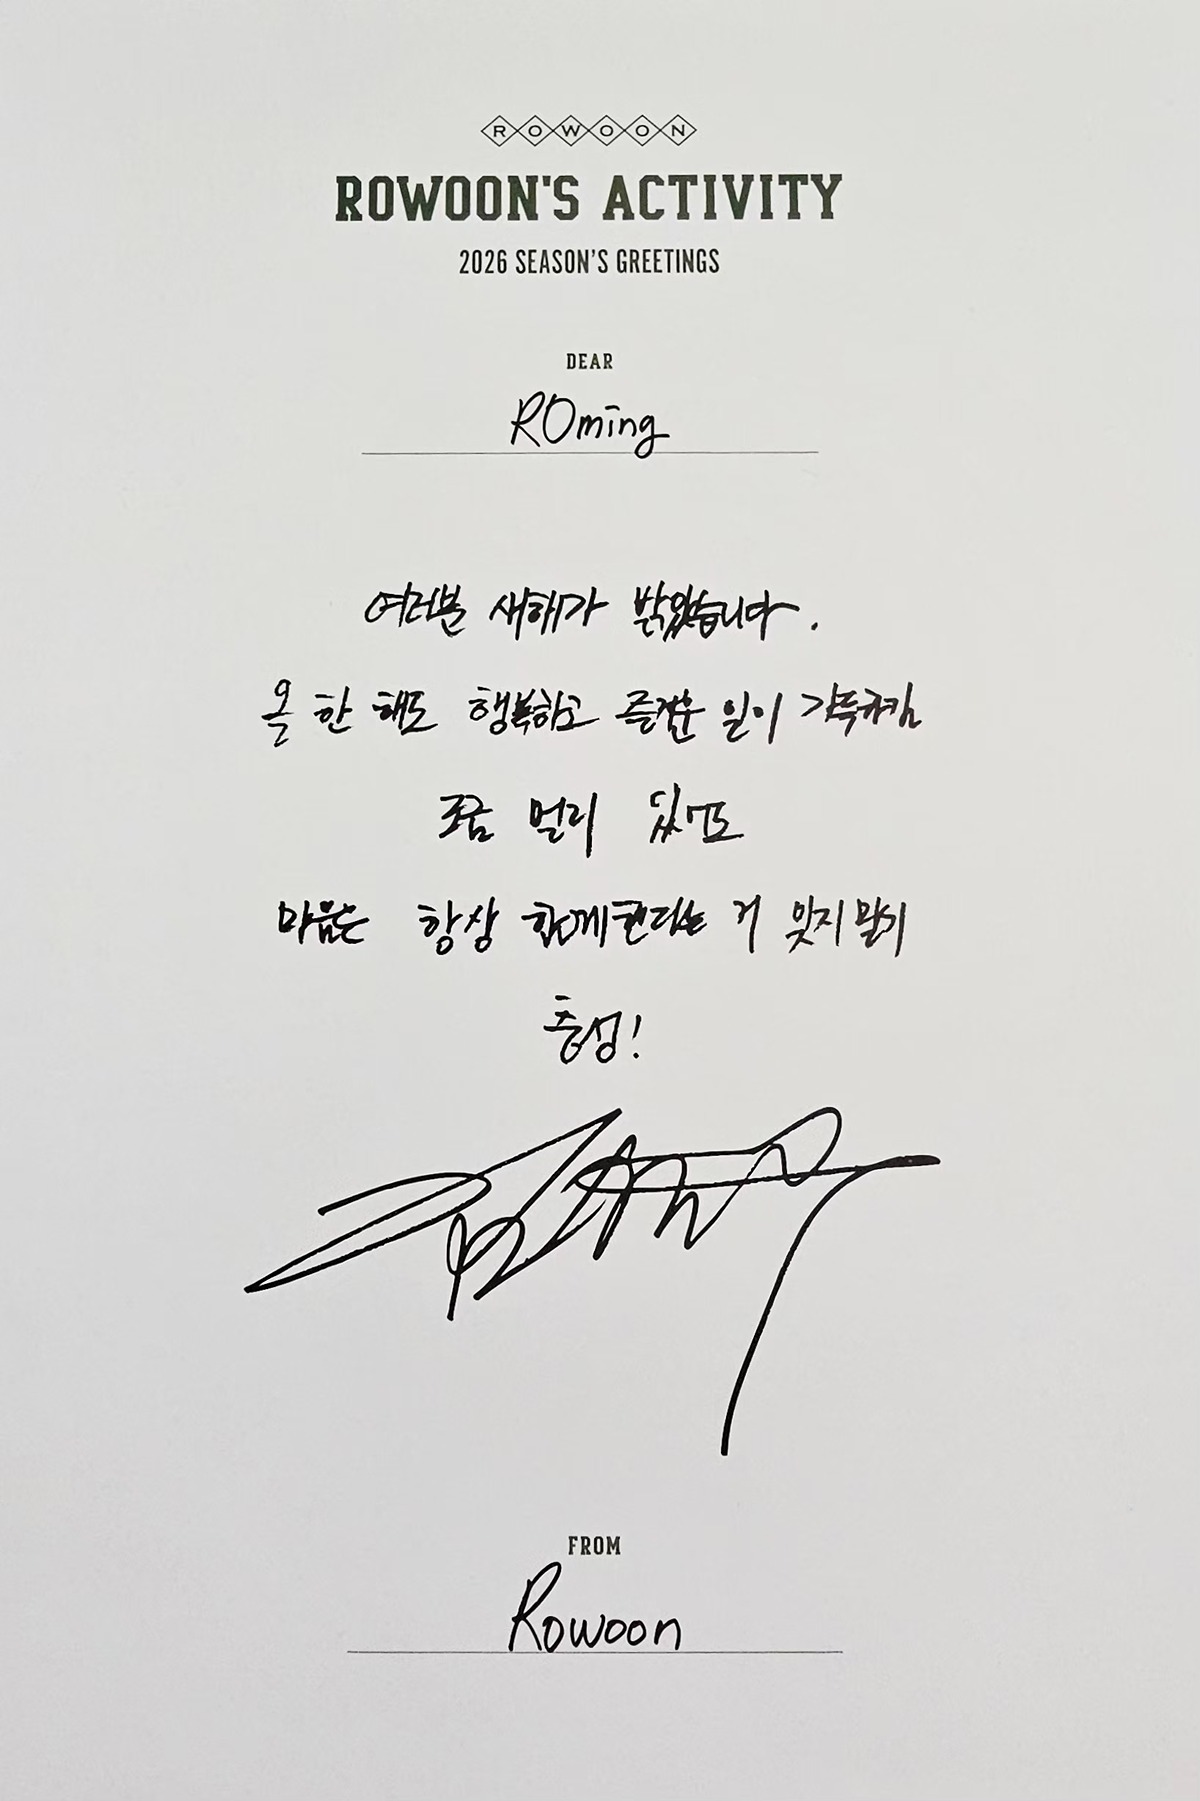 ROWOON
ROWOON'S ACTIVITY
2026 SEASON'S GREETINGS
DEAR
ROming
여러분 새해가 밝았습니다.
올 한 해도 행복하고 즐거운 일이 가득하길
조금 멀리 있어도
마음은 항상 함께한다는 거 잊지 말기
충성!
FROM
Rowoon